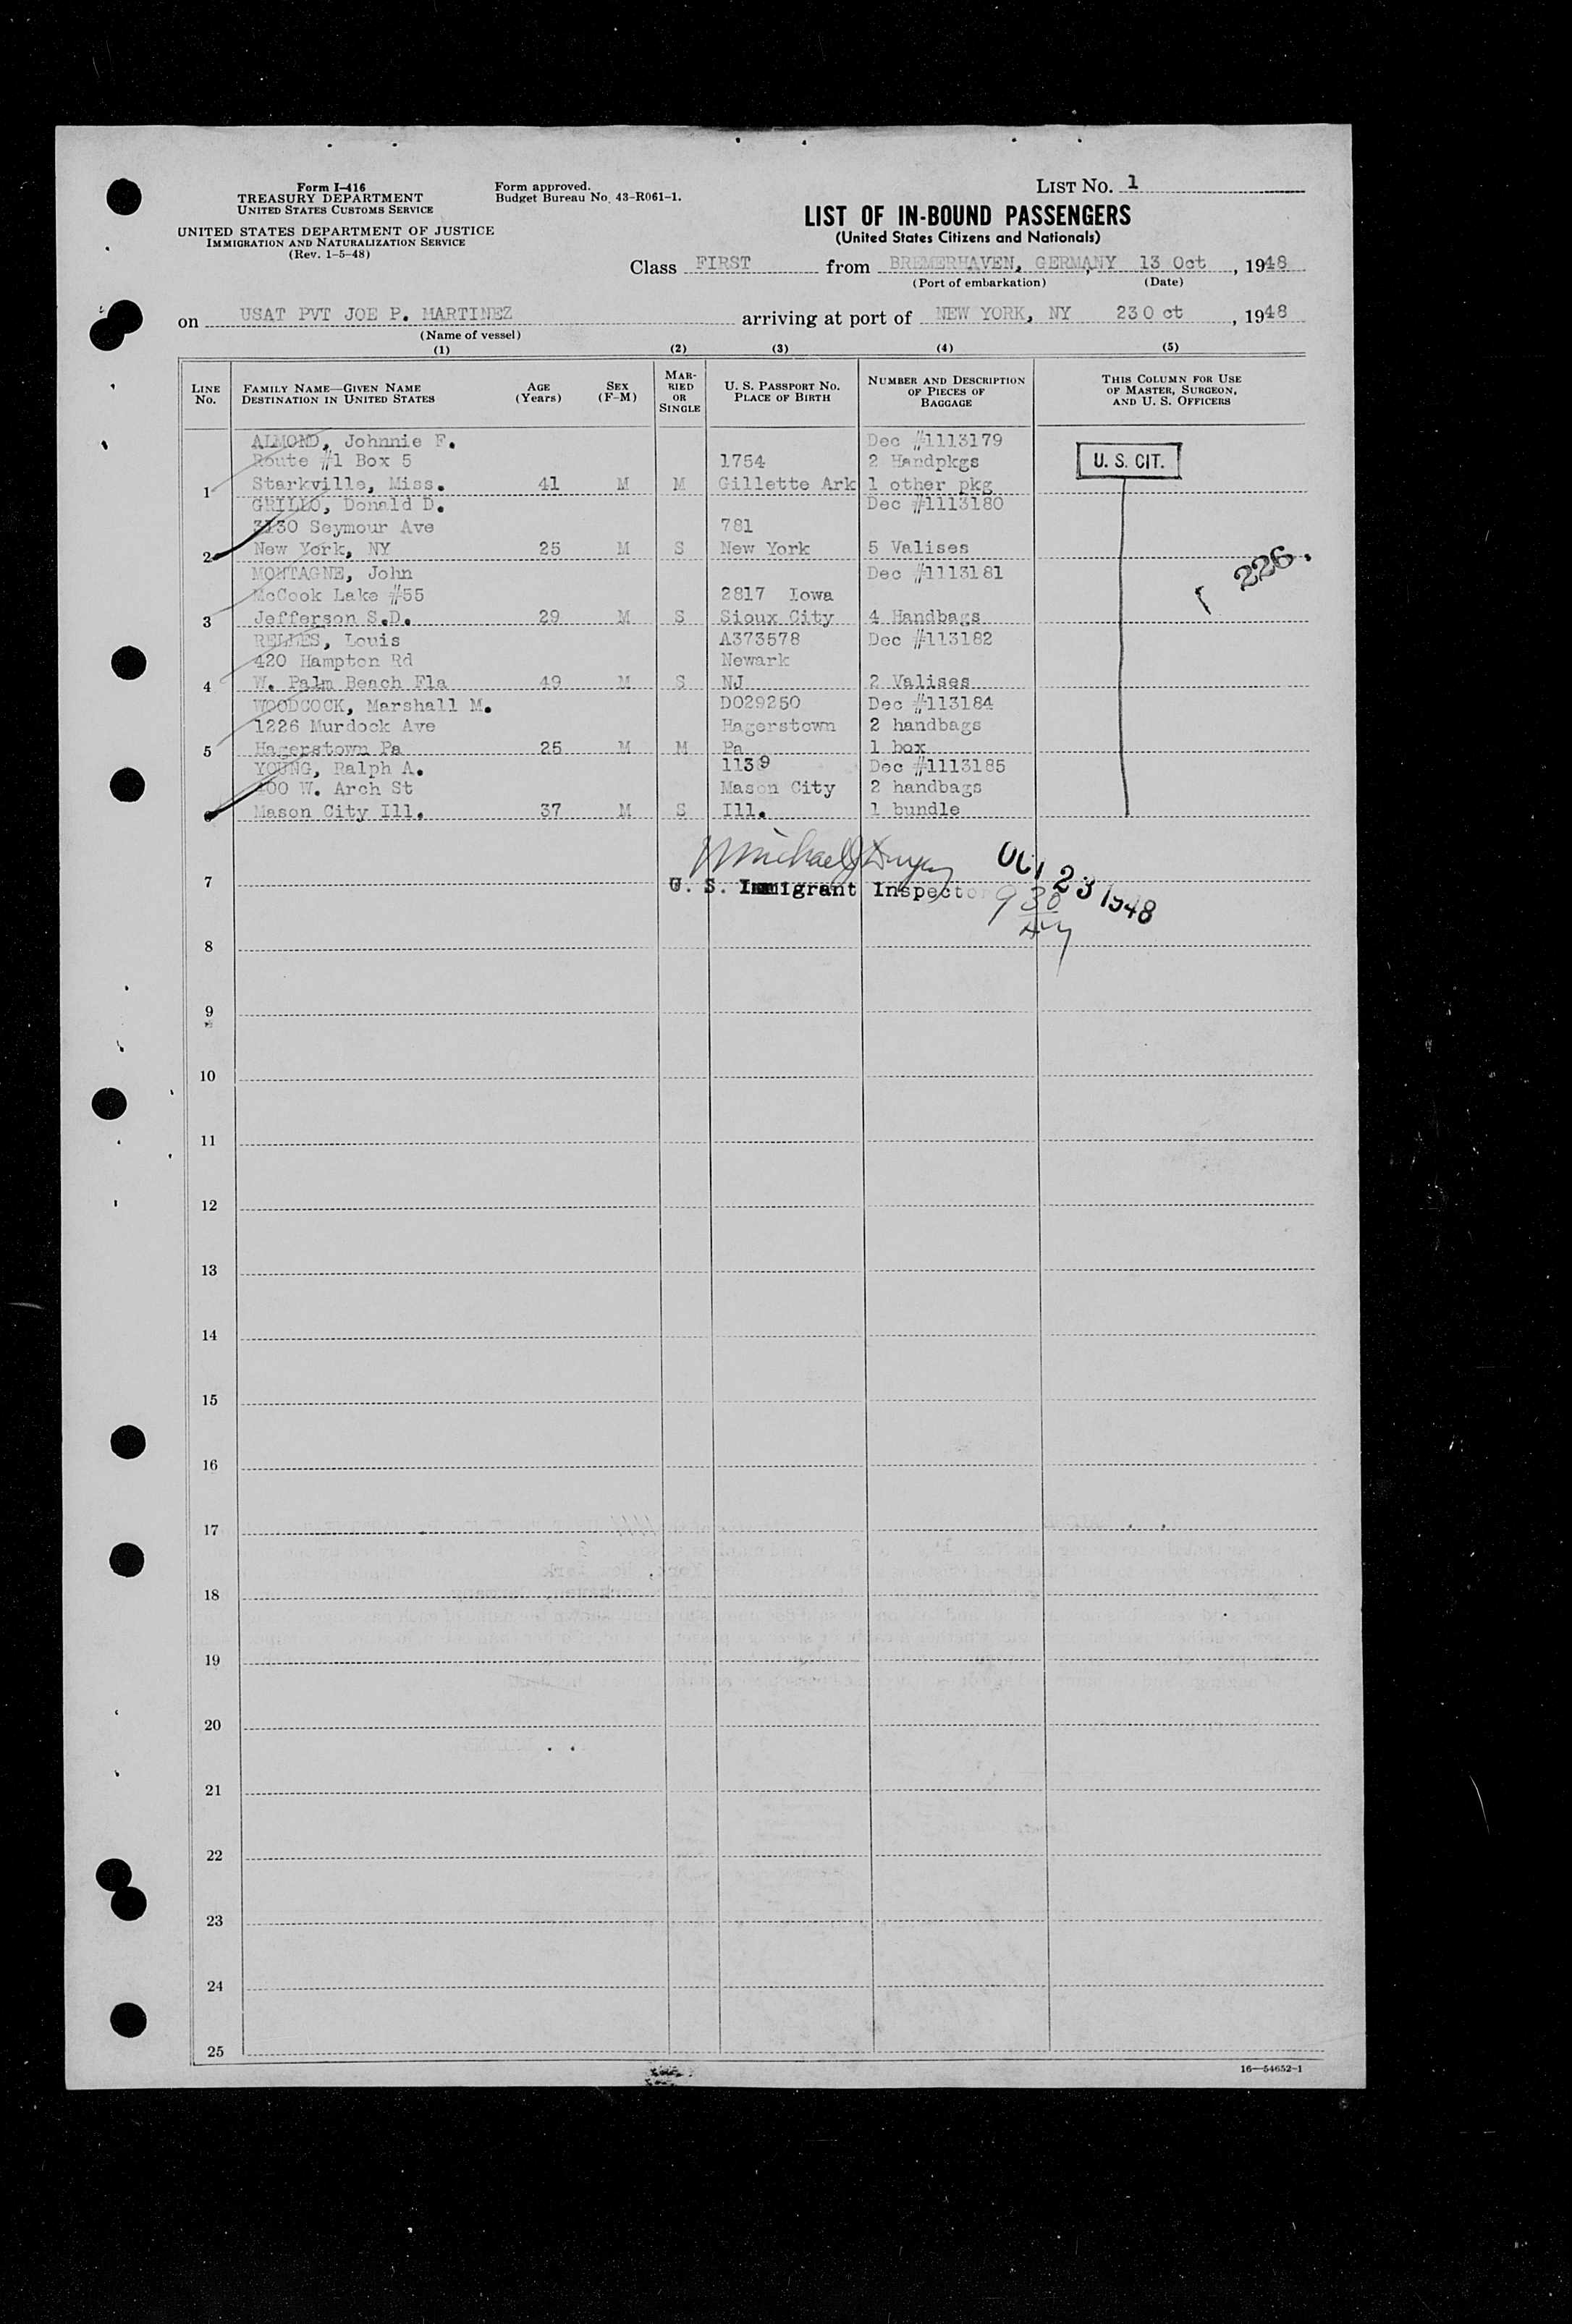 Form I-416
TREASURY DEPARTMENT
UNITED STATES CUSTOMS SERVICE
UNITED STATES DEPARTMENT OF JUSTICE
IMMIGRATION AND NATURALIZATION SERVICE
(Rev. 1-5-48)
Form approved.
Budget Bureau No. 43-R061-1.
LIST No. 1
LIST OF IN-BOUND PASSENGERS
(United States Citizens and Nationals)
Class FIRST from BREMERHAVEN, GERMANY 13 Oct , 1948
(Port of embarkation) (Date)
on USAT PVT JOE P. MARTINEZ arriving at port of NEW YORK, NY 23 O ct , 1948
(Name of vessel)
(1) (2) (3) (4) (5)
LINE No. FAMILY NAME—GIVEN NAME DESTINATION IN UNITED STATES AGE (Years) SEX (F-M) MARRIED OR SINGLE U. S. PASSPORT NO. PLACE OF BIRTH NUMBER AND DESCRIPTION OF PIECES OF BAGGAGE THIS COLUMN FOR USE OF MASTER, SURGEON, AND U. S. OFFICERS
ALMOND, Johnnie F. Dec #1113179
Route #1 Box 5 1754 2 Handpkgs U. S. CIT.
1 Starkville, Miss. 41 M M Gillette Ark 1 other pkg
GRILLO, Donald D. Dec #1113180
3130 Seymour Ave 781
2 New York, NY 25 M S New York 5 Valises
MONTAGNE, John Dec #1113181 226.
McCook Lake #55 2817 Iowa
3 Jefferson S.D. 29 M S Sioux City 4 Handbags
RELLES, Louis A373578 Dec #113182
420 Hampton Rd Newark
4 W. Palm Beach Fla 49 M S NJ 2 Valises
WOODCOCK, Marshall M. D029250 Dec #113184
1226 Murdock Ave Hagerstown 2 handbags
5 Hagerstown Pa 25 M M Pa 1 box
YOUNG, Ralph A. 1139 Dec #1113185
400 W. Arch St Mason City 2 handbags
6 Mason City Ill. 37 M S Ill. 1 bundle
Michael J
7 U. S. Immigrant Inspector OCT 23 1948
9 30
8
9
10
11
12
13
14
15
16
17
18
19
20
21
22
23
24
25
16—54652-1